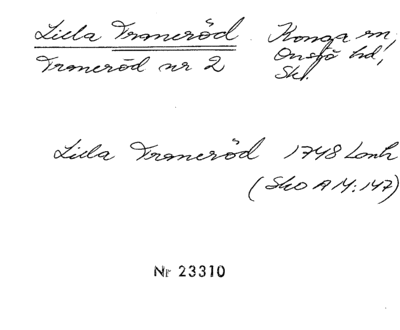 Lilla Traneröd Konga sn,
Traneröd nr 2 Onsjö hd,
Sk.
Lilla Traneröd 1748 Lanh
(Sko A M:147)
Nr 23310